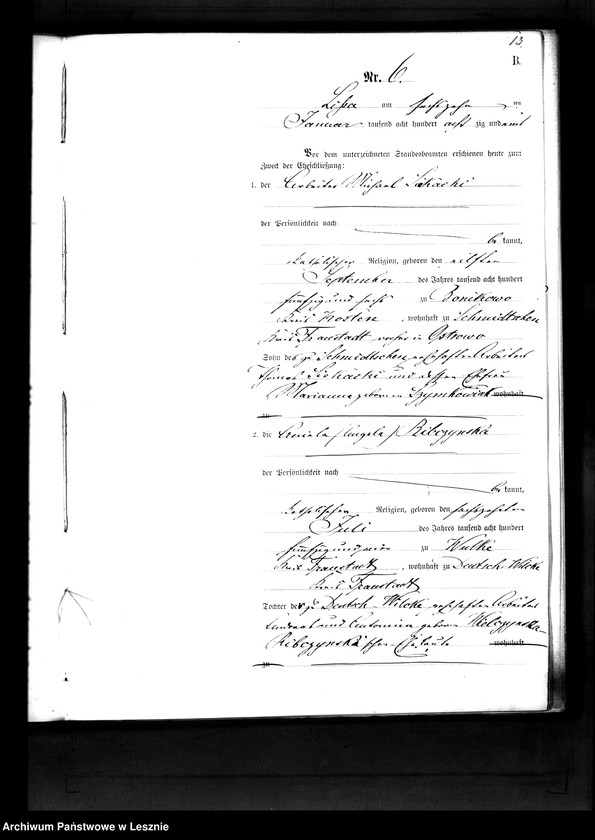 13
B.
Nr. 6.
Lissa am sechszehn ten
Januar tausend acht hundert acht zig und
Vor dem unterzeichneten Standesbeamten erschienen heute zum
Zweck der Eheschließung:
1. der Arbeiter Michael
der Persönlichkeit nach
be kannt,
katholischer Religion, geboren den eilften
September des Jahres tausend acht hundert
fünfzig und sechs zu Bonikowo
Kreis Kosten, wohnhaft zu Schmidtschen
Kreis Fraustadt, vorher in Ostrowo
Sohn des zu Schmidtschen wohnhaften Arbeiters
Thomas und dessen Ehefrau
Marianna geborenen Szymkowiak wohnhaft
zu
2. die Aniela (Angela) Ribczynska
der Persönlichkeit nach
be kannt,
katholischer Religion, geboren den sechszehnten
Juli des Jahres tausend acht hundert
fünfzig und vier zu Wulke
Kreis Fraustadt, wohnhaft zu Deutsch-Wilcke
Kreis Fraustadt
Tochter der zu Deutsch-Wilcke wohnhaften Arbeiter
und Antonina geborene
Ribczynska'schen Eheleute wohnhaft
zu
Archiwum Państwowe w Lesznie